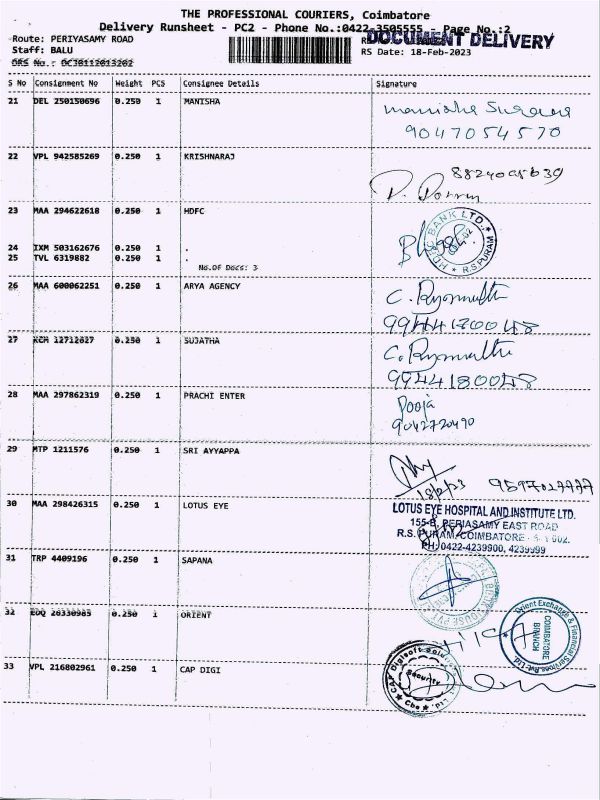 THE PROFESSIONAL COURIERS, Coimbatore
Delivery Runsheet - PC2 - Phone No.:0422-3505555 - Page No.:2
DOCUMENT DELIVERY
Route: PERIYASAMY ROAD
Staff: BALU
RS Date: 18-Feb-2023
DRS No.: DCJB112013202
S No Consignment No Weight PCS Consignee Details Signature
21 DEL 250150696 0.250 1 MANISHA
9047054570
22 VPL 942585269 0.250 1 KRISHNARAJ
23 MAA 294622618 0.250 1 HDFC
HDFC BANK LTD. R.S.PURAM
24 IXM 503162676 0.250 1 .
25 TVL 6319882 0.250 1 .
No.Of Docs: 3
26 MAA 600062251 0.250 1 ARYA AGENCY
27 KCM 12712827 0.250 1 SUJATHA
9944180048
28 MAA 297862319 0.250 1 PRACHI ENTER
Pooja
9042720490
29 MTP 1211576 0.250 1 SRI AYYAPPA
18/2/23
30 MAA 298426315 0.250 1 LOTUS EYE
LOTUS EYE HOSPITAL AND INSTITUTE LTD.
155-B, PERIASAMY EAST ROAD
R.S. PURAM, COIMBATORE
PH: 0422-4239900, 4239999
31 TRP 4409196 0.250 1 SAPANA
32 EDQ 26330985 0.250 1 ORIENT
Orient Exchange & Financial Services Pvt. Ltd.
COIMBATORE
BRANCH
33 VPL 216802961 0.250 1 CAP DIGI
CAP Digisoft
Security
Cbe